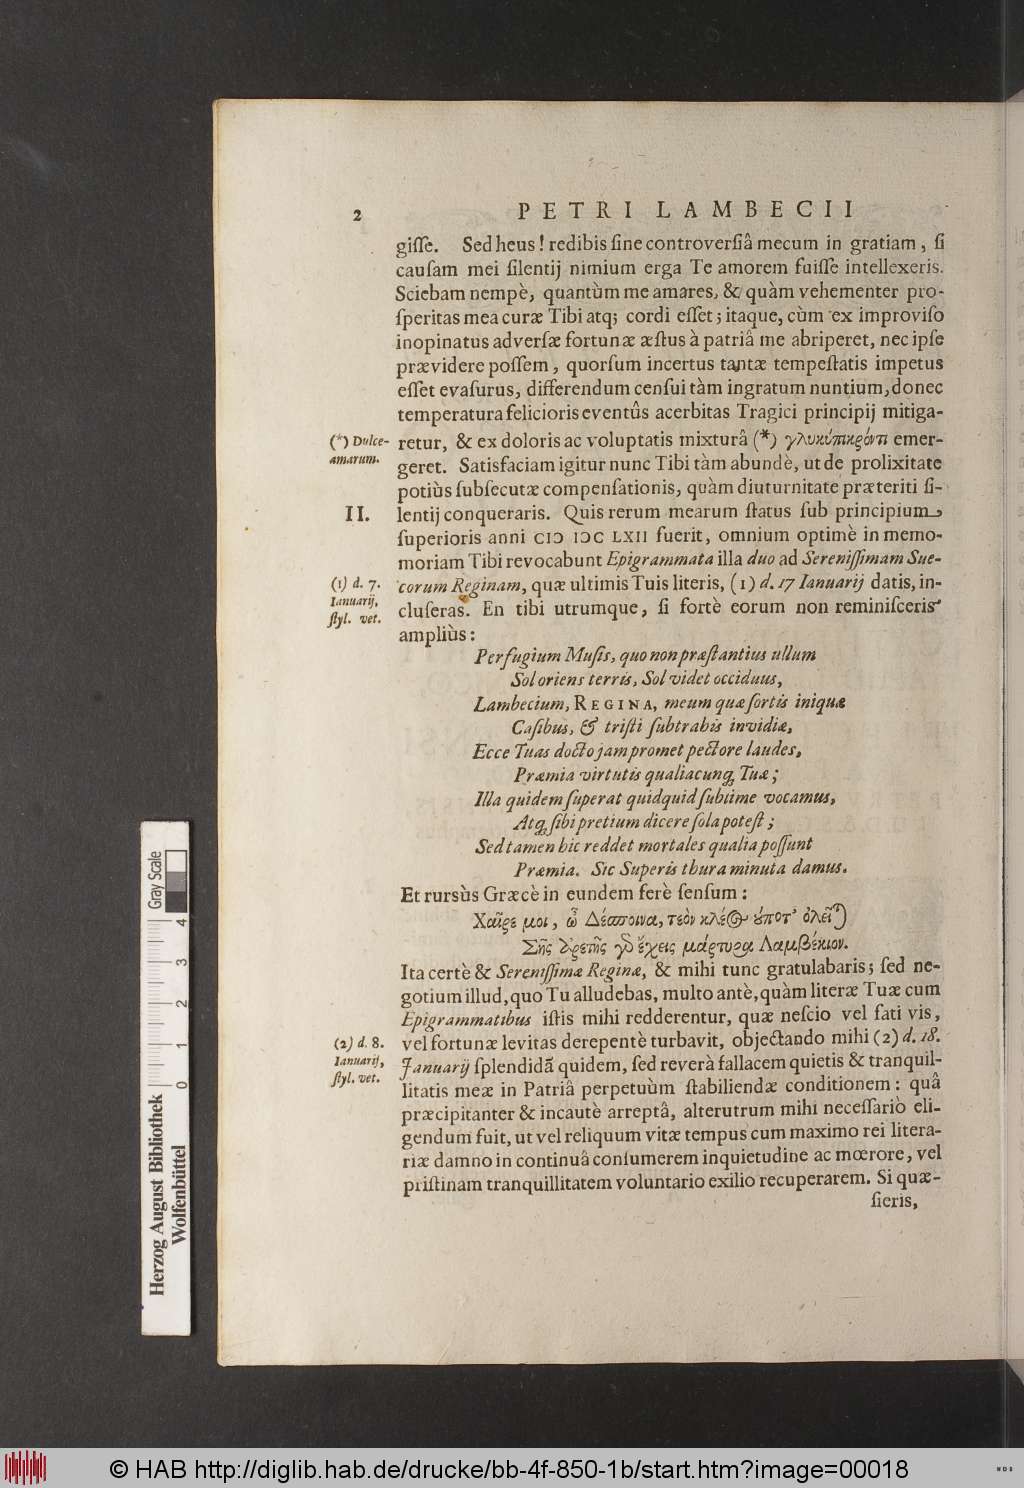 2 PETRI LAMBECII
giſſe. Sed heus! redibis ſine controverſiâ mecum in gratiam, ſi
cauſam mei ſilentij nimium erga Te amorem fuiſſe intellexeris.
Sciebam nempè, quantùm me amares, & quàm vehementer pro-
ſperitas mea curæ Tibi atq; cordi eſſet; itaque, cùm ex improviſo
inopinatus adverſæ fortunæ æſtus à patriâ me abriperet, nec ipſe
prævidere poſſem, quorſum incertus tantæ tempeſtatis impetus
eſſet evaſurus, differendum cenſui tàm ingratum nuntium, donec
temperatura felicioris eventûs acerbitas Tragici principij mitiga-
(*) Dulce-
amarum.
retur, & ex doloris ac voluptatis mixturâ (*) γλυκύπικρόν τι emer-
geret. Satisfaciam igitur nunc Tibi tàm abundè, ut de prolixitate
potiùs ſubſecutæ compenſationis, quàm diuturnitate præteriti ſi-
II. lentij conqueraris. Quis rerum mearum ſtatus ſub principium
ſuperioris anni CIƆ IƆC LXII fuerit, omnium optimè in memo-
moriam Tibi revocabunt Epigrammata illa duo ad Sereniſſimam Sue-
(1) d. 7.
Ianuarij,
ſtyl. vet.
corum Reginam, quæ ultimis Tuis literis, (1) d. 17 Ianuarij datis, in-
cluſeras. En tibi utrumque, ſi fortè eorum non reminiſceris
ampliùs:
Perfugium Muſis, quo non præſtantius ullum
Sol oriens terris, Sol videt occiduus,
Lambecium, REGINA, meum quæ ſortis iniquæ
Caſibus, & triſti ſubtrahis invidiæ,
Ecce Tuas docto jam promet pectore laudes,
Præmia virtutis qualiacunq; Tuæ;
Illa quidem ſuperat quidquid ſublime vocamus,
Atq; ſibi pretium dicere ſola poteſt;
Sed tamen hic reddet mortales qualia poſſunt
Præmia. Sic Superis thura minuta damus.
Et rursùs Græcè in eundem ferè ſenſum:
Χαῖρε μοι, ὦ Δέσποινα, τεὸν κλέος οὔποτ' ὀλεῖται
Σῆς ἀρετῆς γὰρ ἔχεις μάρτυρα Λαμβέκιον.
Ita certè & Sereniſſimæ Reginæ, & mihi tunc gratulabaris; ſed ne-
gotium illud, quo Tu alludebas, multo antè, quàm literæ Tuæ cum
Epigrammatibus iſtis mihi redderentur, quæ neſcio vel fati vis,
(2) d. 8.
Ianuarij,
ſtyl. vet.
vel fortunæ levitas derepentè turbavit, objectando mihi (2) d. 18.
Januarij ſplendidã quidem, ſed reverà fallacem quietis & tranquil-
litatis meæ in Patriâ perpetuùm ſtabiliendæ conditionem: quâ
præcipitanter & incautè arreptâ, alterutrum mihi neceſſariò eli-
gendum fuit, ut vel reliquum vitæ tempus cum maximo rei litera-
riæ damno in continuâ conſumerem inquietudine ac mœrore, vel
priſtinam tranquillitatem voluntario exilio recuperarem. Si quæ-
ſieris,
Gray Scale
0 1 2 3 4
Herzog August Bibliothek
Wolfenbüttel
© HAB http://diglib.hab.de/drucke/bb-4f-850-1b/start.htm?image=00018